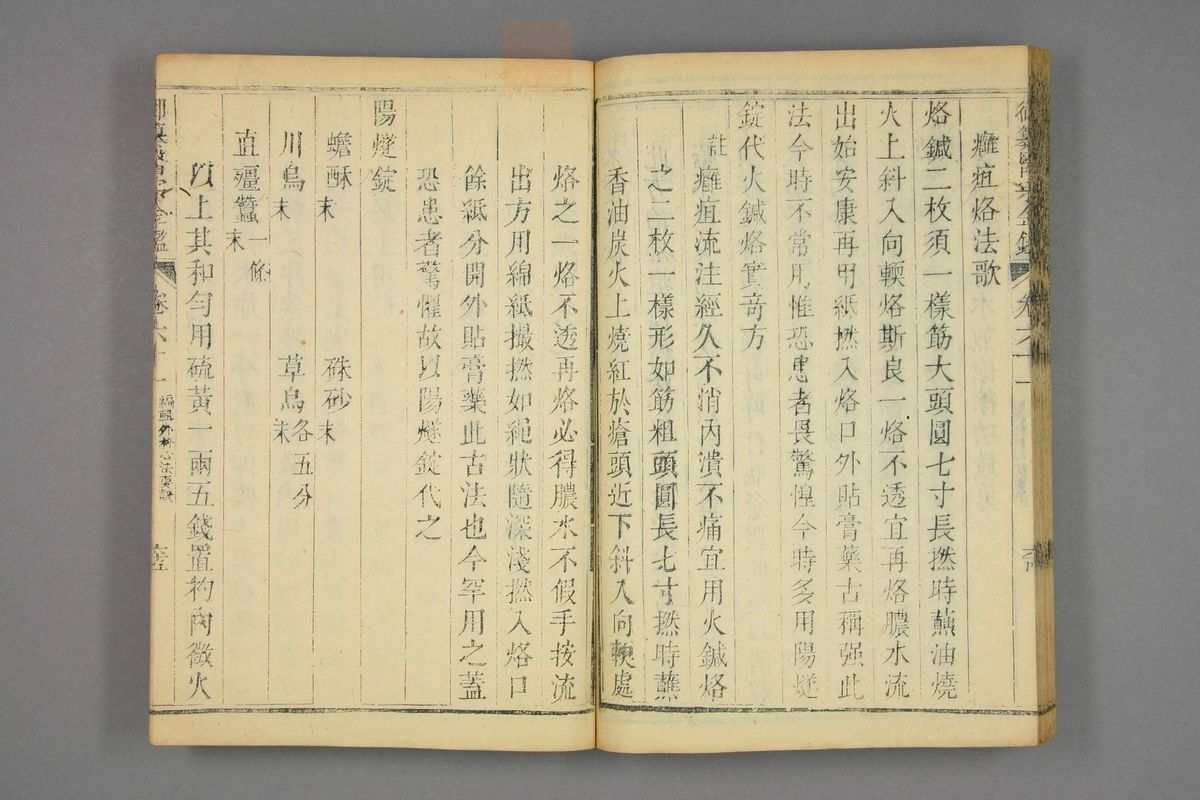 御纂醫宗金鑑 卷六十一
癰疽烙法歌
烙鍼二枚須一樣筯大頭圓七寸長撚時蘸油燒
火上斜入向輭烙斯良一烙不透宜再烙膿水流
出始安康再用紙撚入烙口外貼膏藥古稱强此
法今時不常用惟恐患者畏驚惶今時多用陽燧
錠代火鍼烙實竒方
註癰疽流注經久不消內潰不痛宜用火鍼烙
之二枚一樣形如筯粗頭圓長七寸撚時蘸
香油炭火上燒紅於瘡頭近下斜入向輭處
烙之一烙不透再烙必得膿水不假手按流
出方用綿紙撮撚如繩狀隨深淺撚入烙口
餘紙分開外貼膏藥此古法也今罕用之蓋
恐患者驚懼故以陽燧錠代之
陽燧錠
蟾酥末 硃砂末
川烏末 草烏末各五分
直殭蠶末一條
以上共和勻用硫黃一兩五錢置杓內微火
御纂醫宗金鑑 卷六十一 編輯外科心法要訣